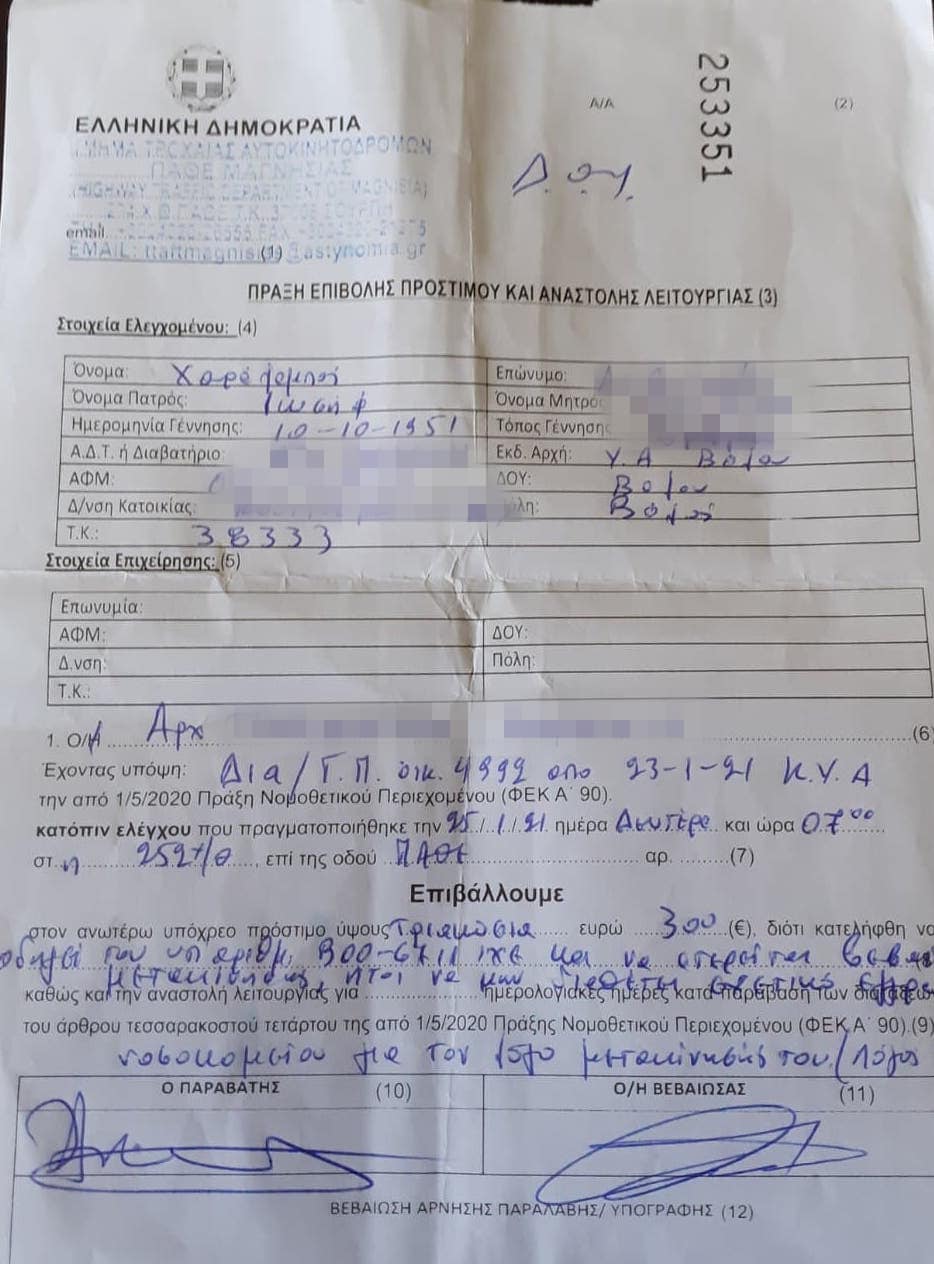 253351
Α/Α
(2)
ΕΛΛΗΝΙΚΗ ΔΗΜΟΚΡΑΤΙΑ
ΤΜΗΜΑ ΤΡΟΧΑΙΑΣ ΑΥΤΟΚΙΝΗΤΟΔΡΟΜΩΝ
ΠΑΘΕ ΜΑΓΝΗΣΙΑΣ
(HIGHWAY TRAFFIC DEPARTMENT OF MAGNISIA)
Δ.Ο.Υ.
email
EMAIL: ttaltmagnis(1)@astynomia.gr
ΠΡΑΞΗ ΕΠΙΒΟΛΗΣ ΠΡΟΣΤΙΜΟΥ ΚΑΙ ΑΝΑΣΤΟΛΗΣ ΛΕΙΤΟΥΡΓΙΑΣ (3)
Στοιχεία Ελεγχομένου: (4)
Όνομα: Χαράλαμπος Επώνυμο:
Όνομα Πατρός: Ιωσήφ Όνομα Μητρό
Ημερομηνία Γέννησης: 10-10-1951 Τόπος Γέννηση
Α.Δ.Τ. ή Διαβατήριο: Εκδ. Αρχή: Υ.Α Βόλου
ΑΦΜ: ΔΟΥ: Βόλου
Δ/νση Κατοικίας: όλη: Βόλος
Τ.Κ.: 38333
Στοιχεία Επιχείρησης: (5)
Επωνυμία:
ΑΦΜ: ΔΟΥ:
Δ.νση: Πόλη:
Τ.Κ.:
1. Ο/Η Αρχ (6)
Έχοντας υπόψη: Δ1α/Γ.Π. οικ. 4992 απο 23-1-21 Κ.Υ.Α
την από 1/5/2020 Πράξη Νομοθετικού Περιεχομένου (ΦΕΚ Α΄ 90).
κατόπιν ελέγχου που πραγματοποιήθηκε την 25/1/21 ημέρα Δευτέρα και ώρα 07:00
στ η 252 χ/θ, επί της οδού ΠΑΘΕ αρ. (7)
Επιβάλλουμε
στον ανωτέρω υπόχρεο πρόστιμο ύψους Τριακόσια ευρώ 300 (€), διότι κατελήφθη να
οδηγεί του υπ αριθμ. ΒΟΟ-6711 ΙΧΕ και να στερείται βεβαι
μετακίνησης, ήτοι να μην διαθέτει σχετικό έγγρα
καθώς και την αναστολή λειτουργίας για ημερολογιακές ημέρες κατά παράβαση των διατάξεων
του άρθρου τεσσαρακοστού τετάρτου της από 1/5/2020 Πράξης Νομοθετικού Περιεχομένου (ΦΕΚ Α΄ 90).(9)
νοσοκομείου για τον λόγο μετακίνησής του./Λόγος
Ο ΠΑΡΑΒΑΤΗΣ (10) Ο/Η ΒΕΒΑΙΩΣΑΣ (11)
ΒΕΒΑΙΩΣΗ ΑΡΝΗΣΗΣ ΠΑΡΑΛΑΒΗΣ/ ΥΠΟΓΡΑΦΗΣ (12)